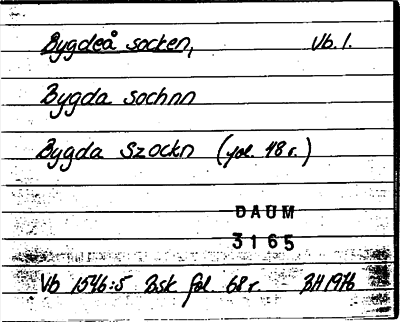 Bygdeå socken, Vb. l.
Bygda sochnn
Bygda Szockn (fol. 48 r.)
DAUM
3165
Vb 1546:5 Bsk fol. 68 r. BH 1976